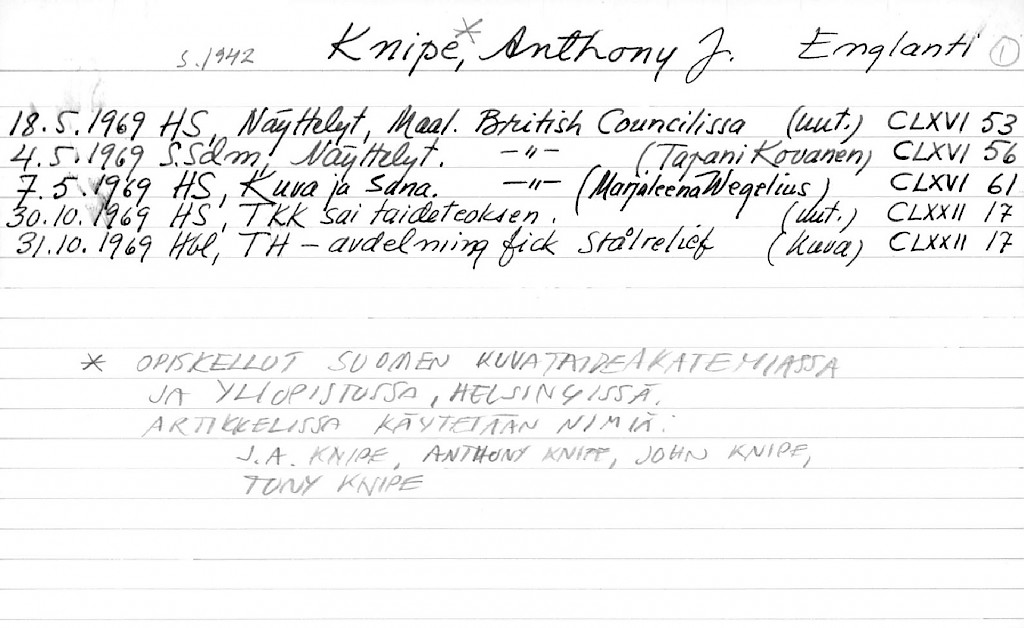 s. 1942 Knipe,* Anthony J. Englanti 1
18.5.1969 HS, Näyttelyt, Maal. British Councilissa (uut.) CLXVI 53
4.5.1969 S.Sdm, Näyttelyt. —"— (Tapani Kovanen) CLXVI 56
7.5.1969 HS, Kuva ja Sana. —"— (Marjaleena Wegelius) CLXVI 61
30.10.1969 HS, TKK sai taideteoksen. (uut.) CLXXII 17
31.10.1969 Hbl, TH – avdelning fick stålrelief (kuva) CLXXII 17
* OPISKELLUT SUOMEN KUVATAIDEAKATEMIASSA
JA YLIOPISTOSSA, HELSINGISSÄ.
ARTIKKELISSA KÄYTETÄÄN NIMIÄ:
J.A. KNIPE, ANTHONY KNIPE, JOHN KNIPE,
TONY KNIPE